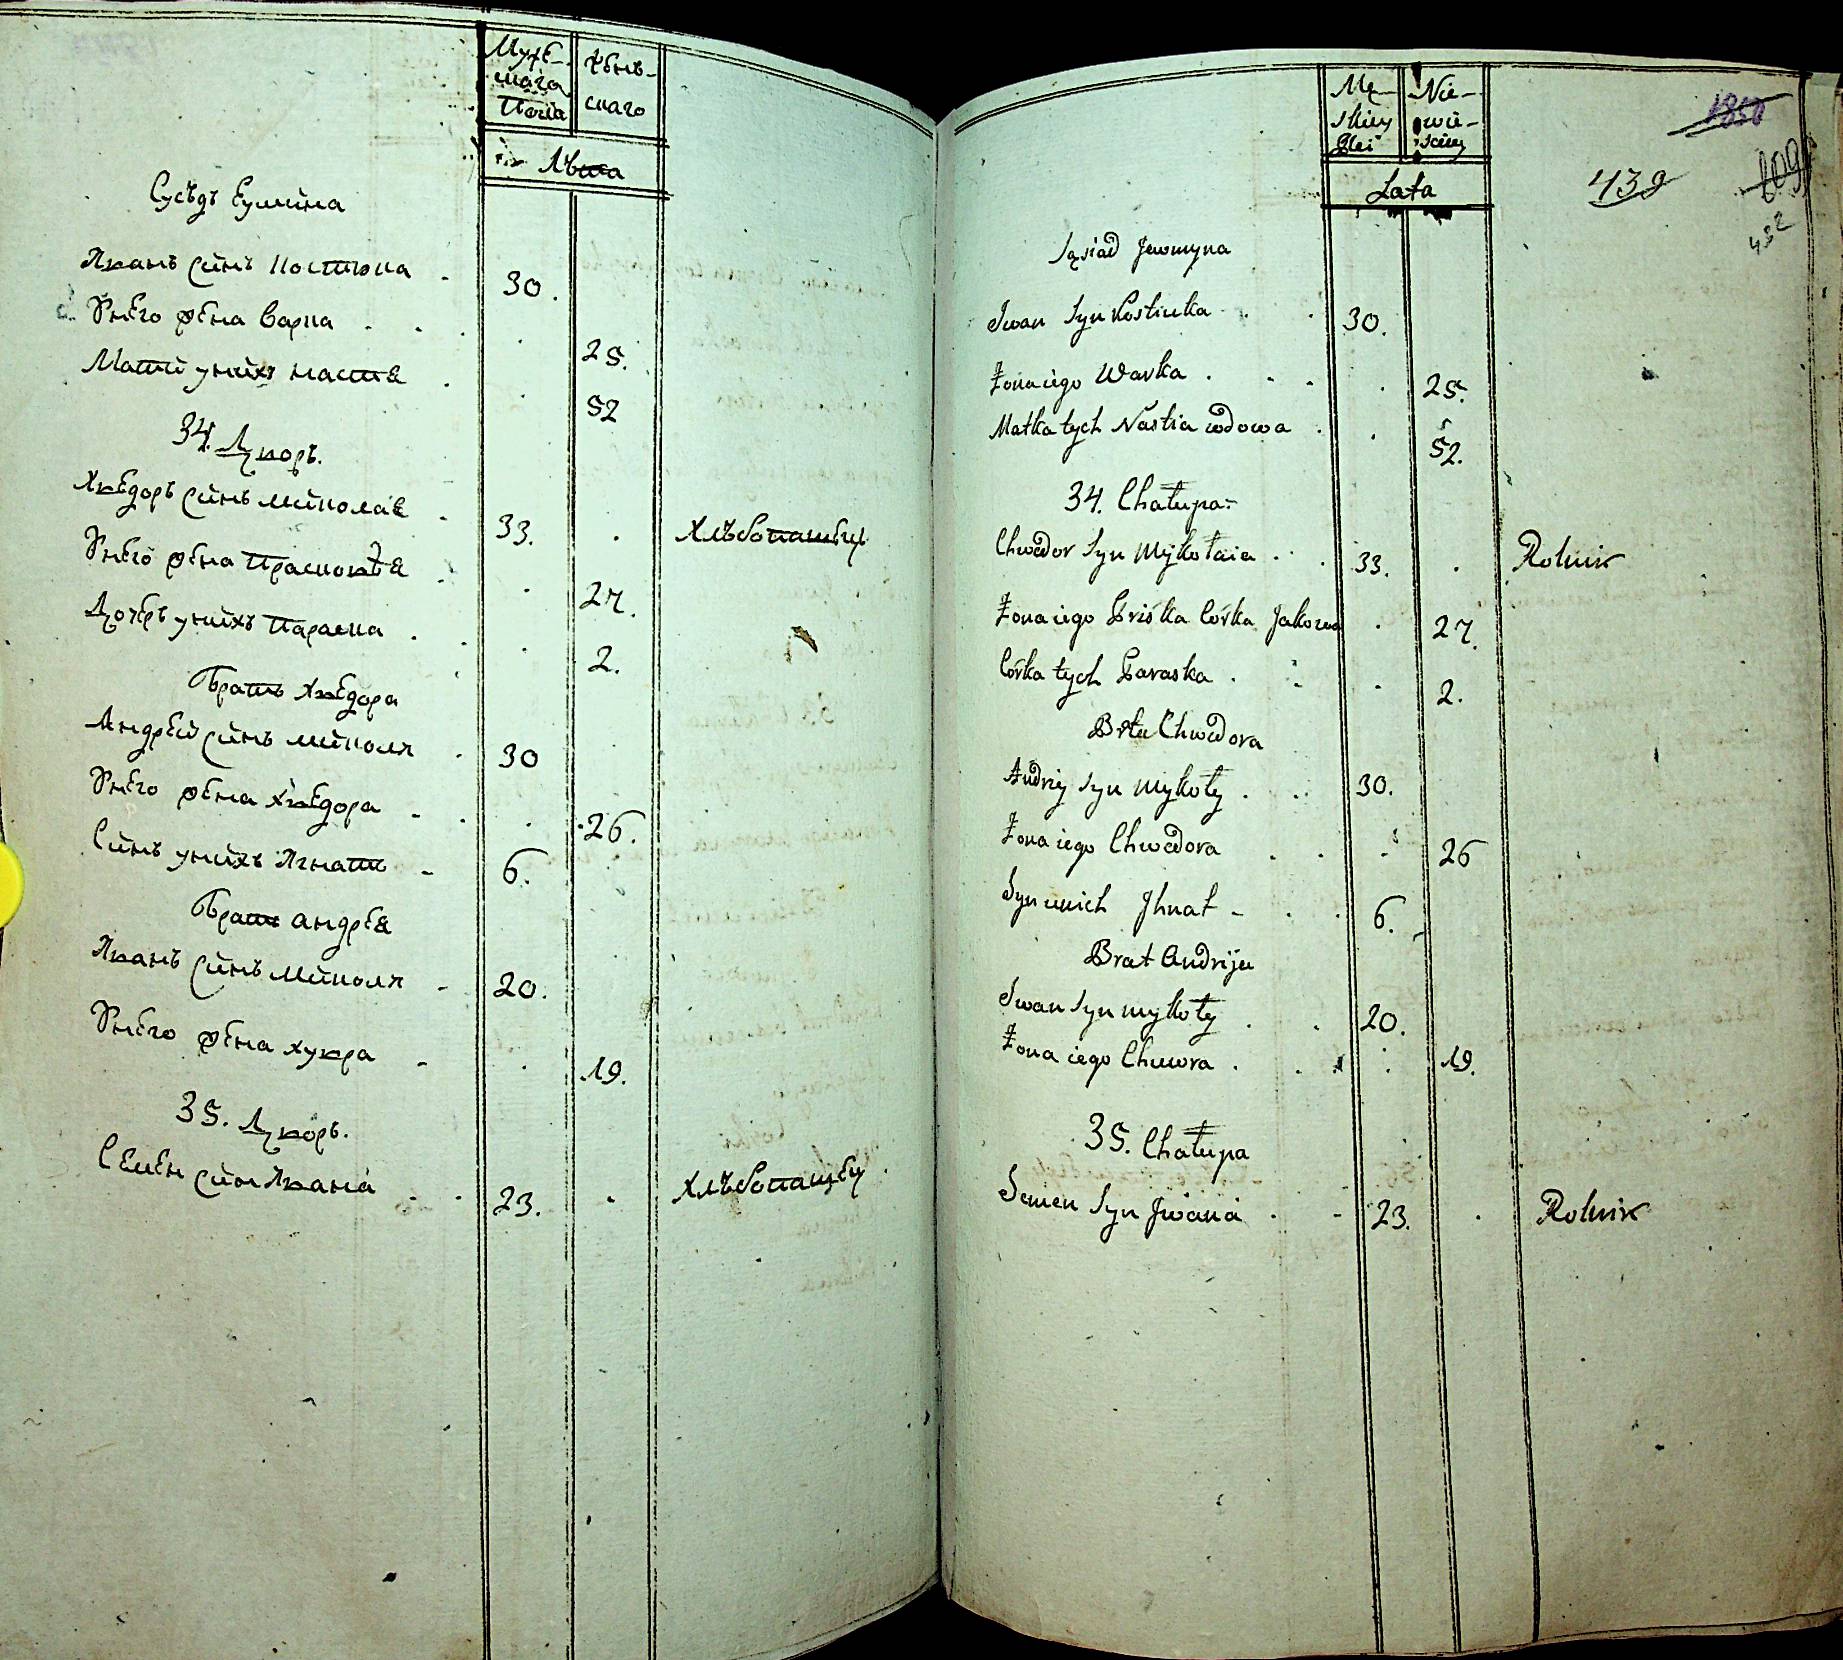 Мужε-
скаго
Пола
жεнъ-
скаго
Лѣта
Сусѣдъ Еумина
Иванъ синъ костюка 30.
Унεго жεна Варка 25.
Мати унихъ настѣ 52
34. Дворъ.
Хвεдоръ синъ миколаε 33. Хлѣбопашεцъ
Унεго жεна Праско 27.
Дочεръ унихъ Параска 2.
Братъ хвεдора
Андрεй синъ миколи 30
Унεго жεна хвεдора 26.
Синъ унихъ Игнатъ 6.
Братъ андрεѣ
Иванъ синъ миколи 20.
Унεго жεна хувра 19.
35. Дворъ.
Сεмεн син Ивана 23. Хлѣбопашεцъ
Mę-
skiey
płci
Nie-
wie-
sciey
Lata
1850
439
609
452
Sąsiad Jewmyna
Iwan Syn Kostiuka 30.
Żona iego Warka 25.
Matka tych Nastia wdowa 52.
34. Chałupa
Chwedor Syn Mykołaia 33. Rolnik
Żona iego Priśka Córka Jakowa 27.
Córka tych Paraska 2.
Brtu Chwedora
Andriy Syn Mykoły 30.
Żona iego Chwedora 26
Syn unich Ihnat 6.
Brat Andriju
Iwan Syn mykoły 20.
Żona iego Chuwra 19.
35. Chałupa
Semen Syn Jwana 23. Rolnik